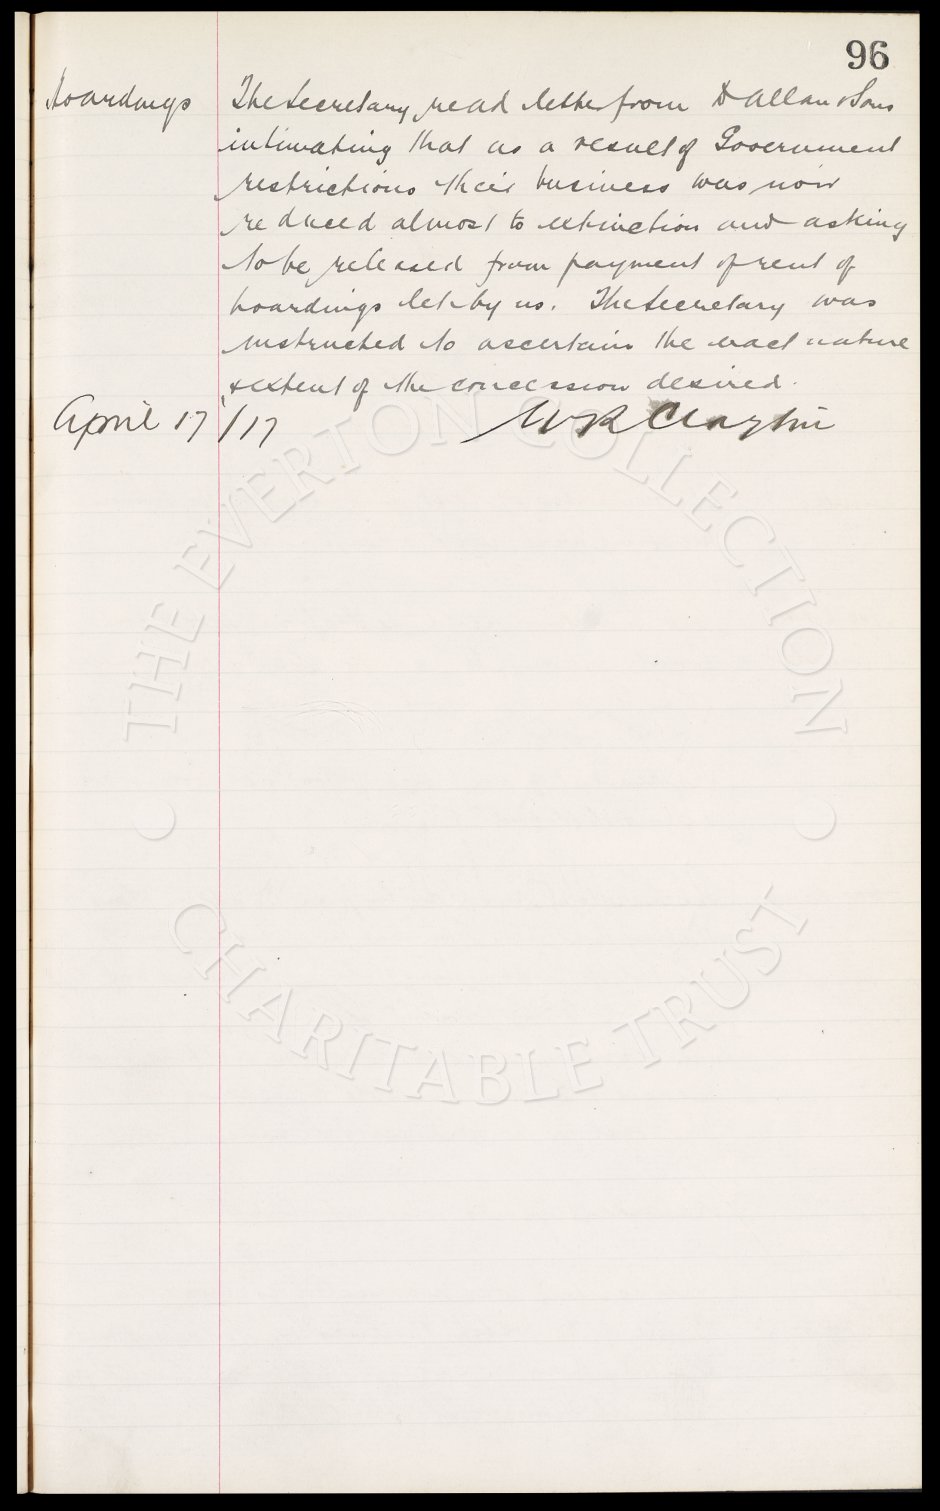 96
Hoardings The Secretary read letter from D Allan & Sons
intimating that as a result of Government
restrictions their business was now
reduced almost to extinction and asking
to be released from payment of rent of
hoardings let by us. The Secretary was
instructed to ascertain the exact nature
& extent of the concession desired.
April 17/17 W R Clayton
THE EVERTON COLLECTION
CHARITABLE TRUST